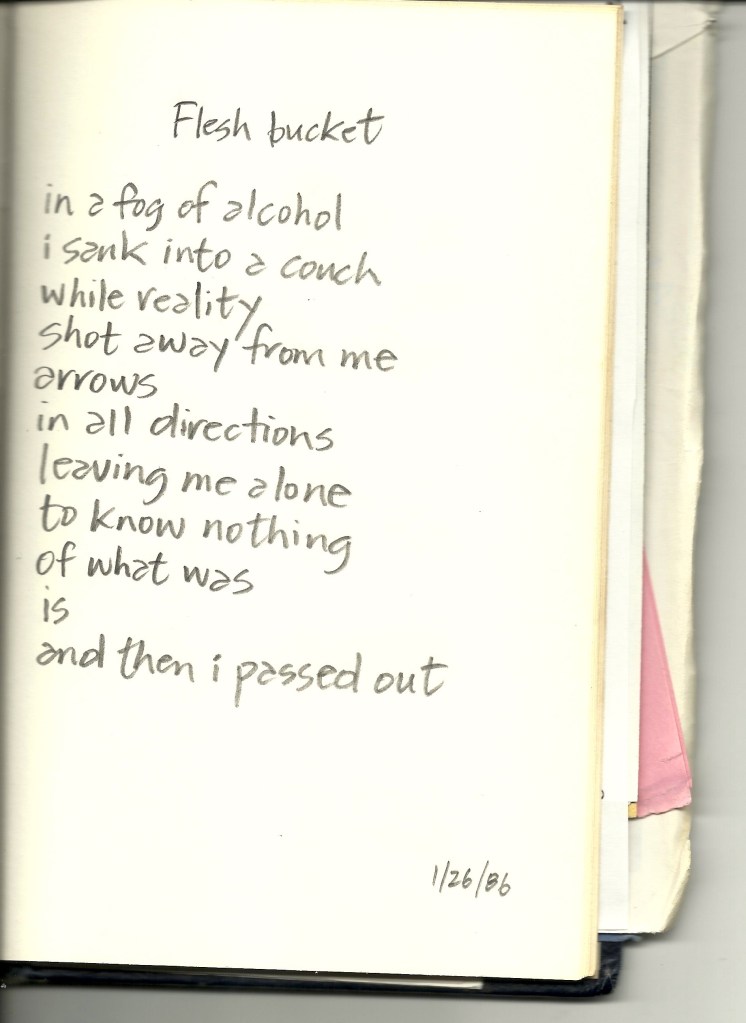 Flesh bucket
in a fog of alcohol
i sank into a couch
while reality
shot away from me
arrows
in all directions
leaving me alone
to know nothing
of what was
is
and then i passed out
1/26/86